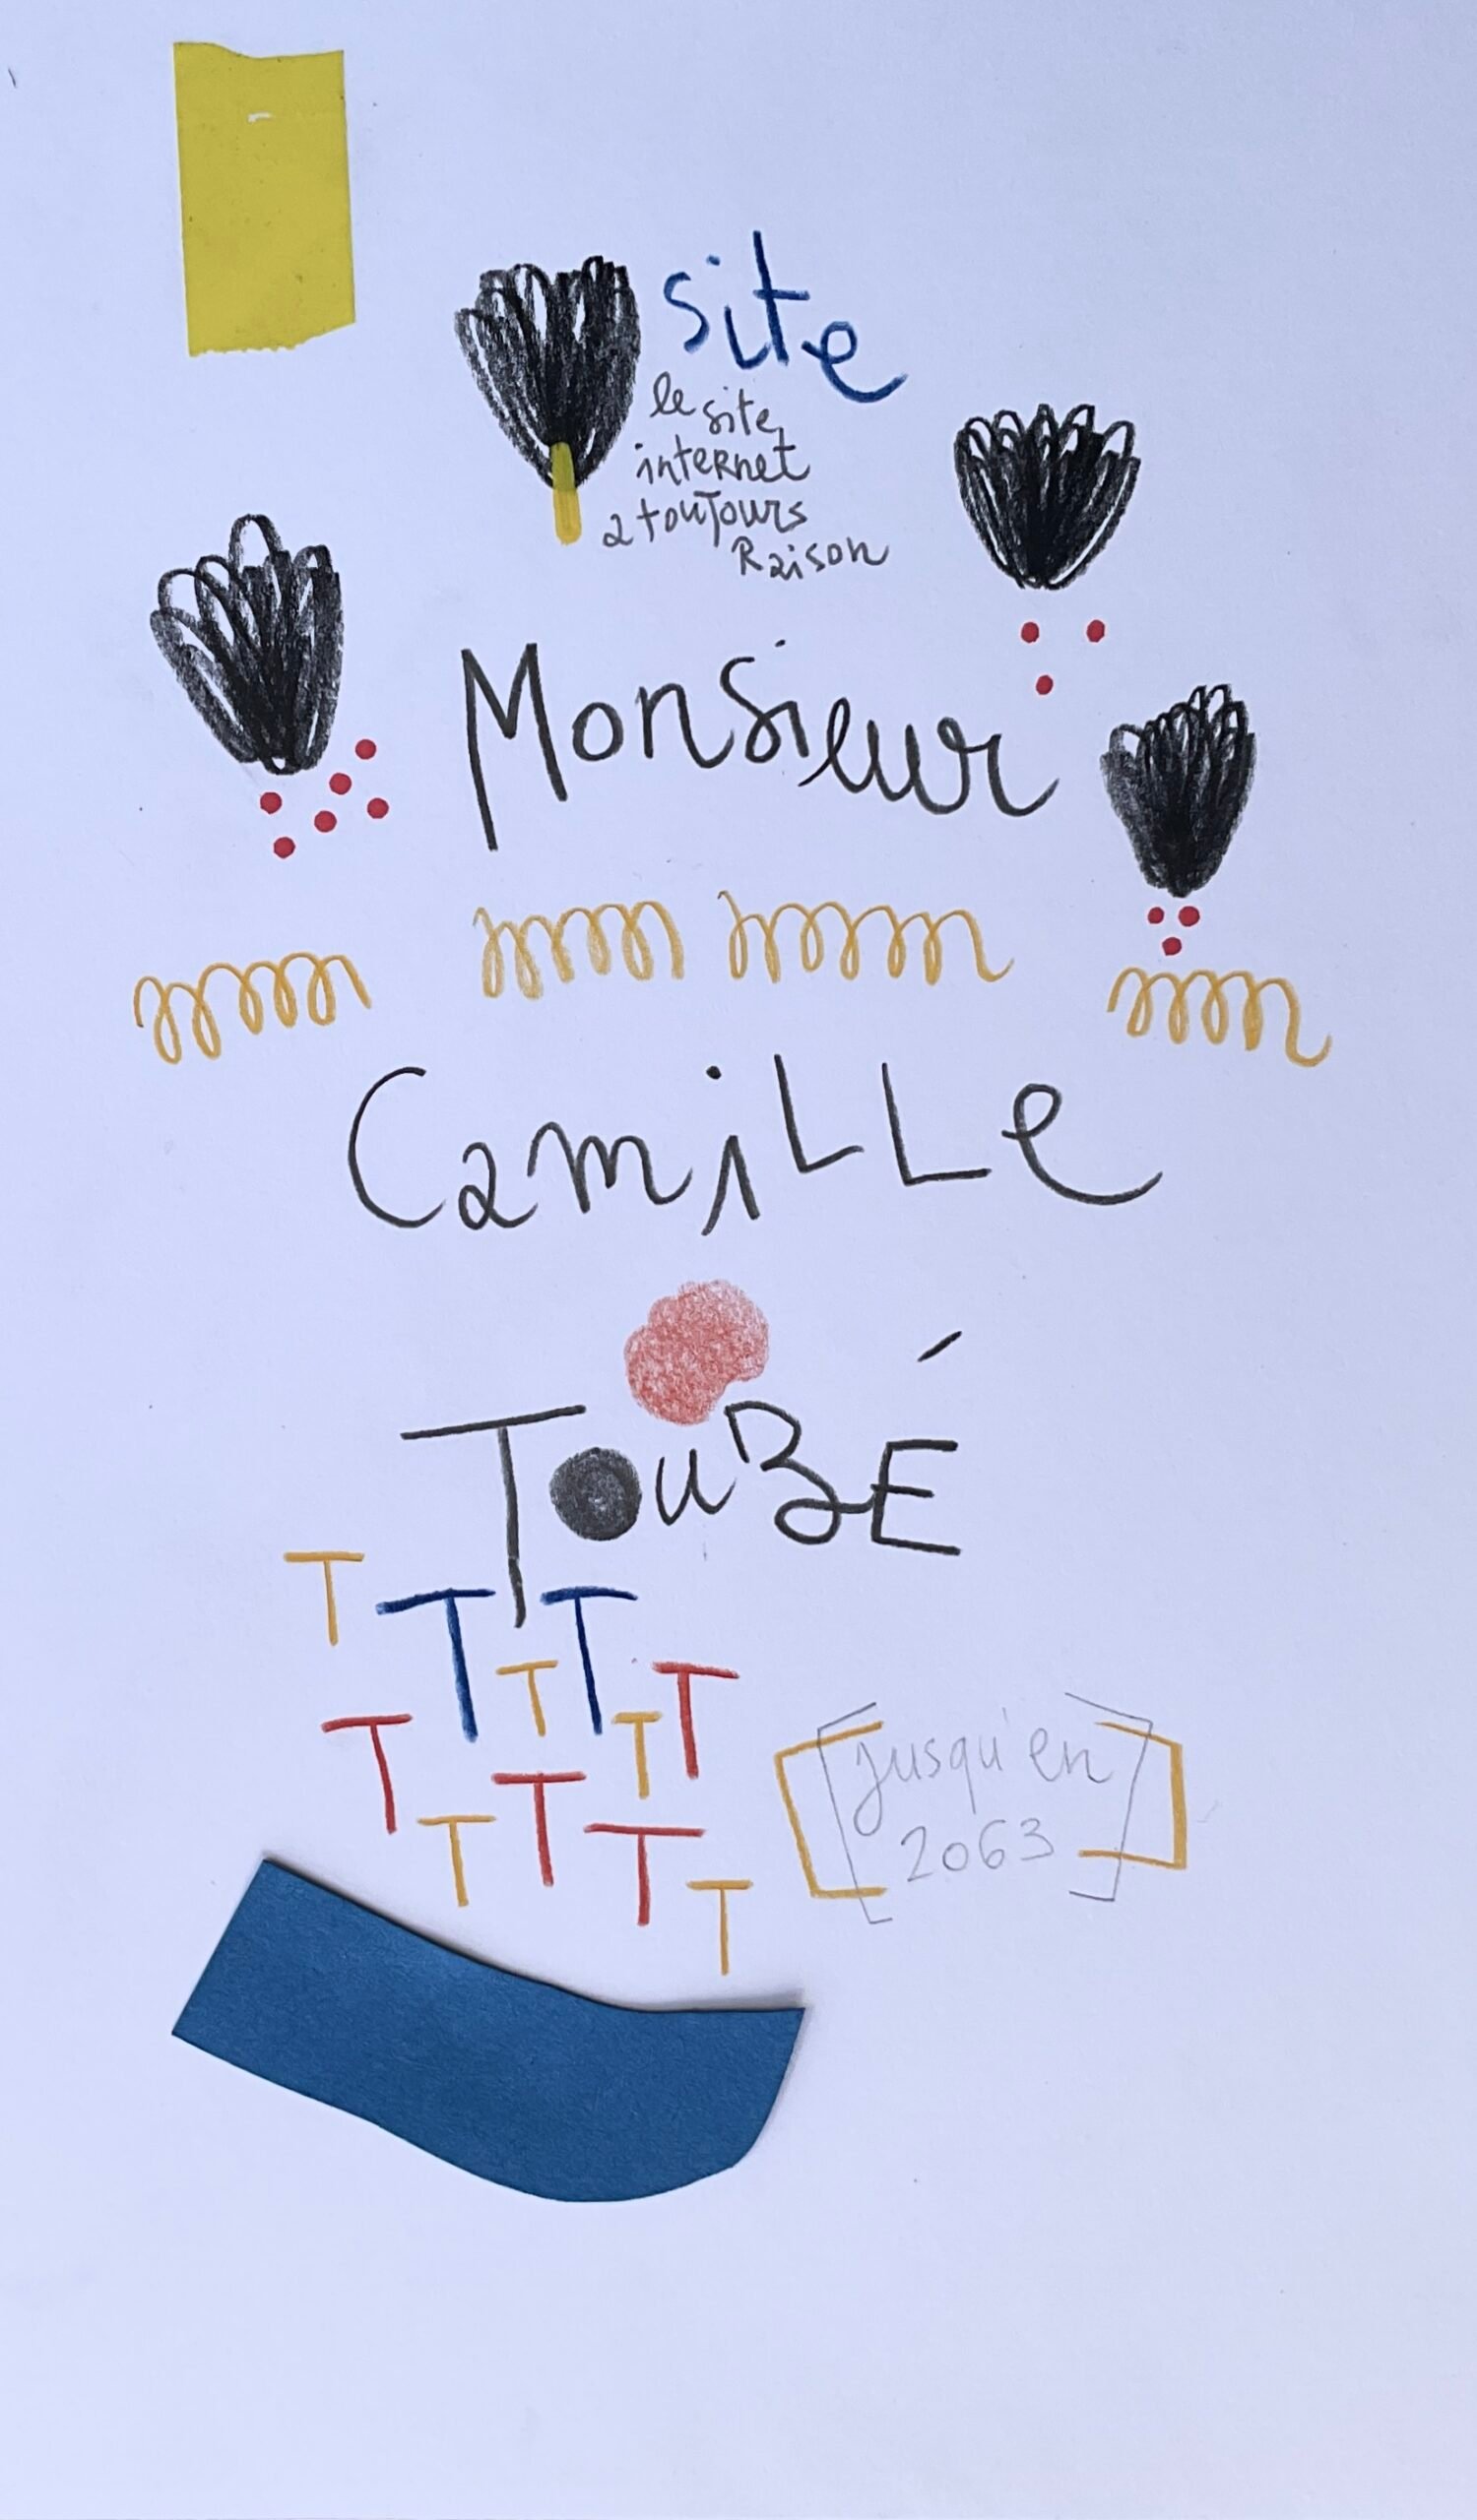 site
le site
internet
a toujours
Raison
Monsieur
CamiLLe
TouZÉ
T
T T
T T
T T
T T
T T
jusqu'en
2063